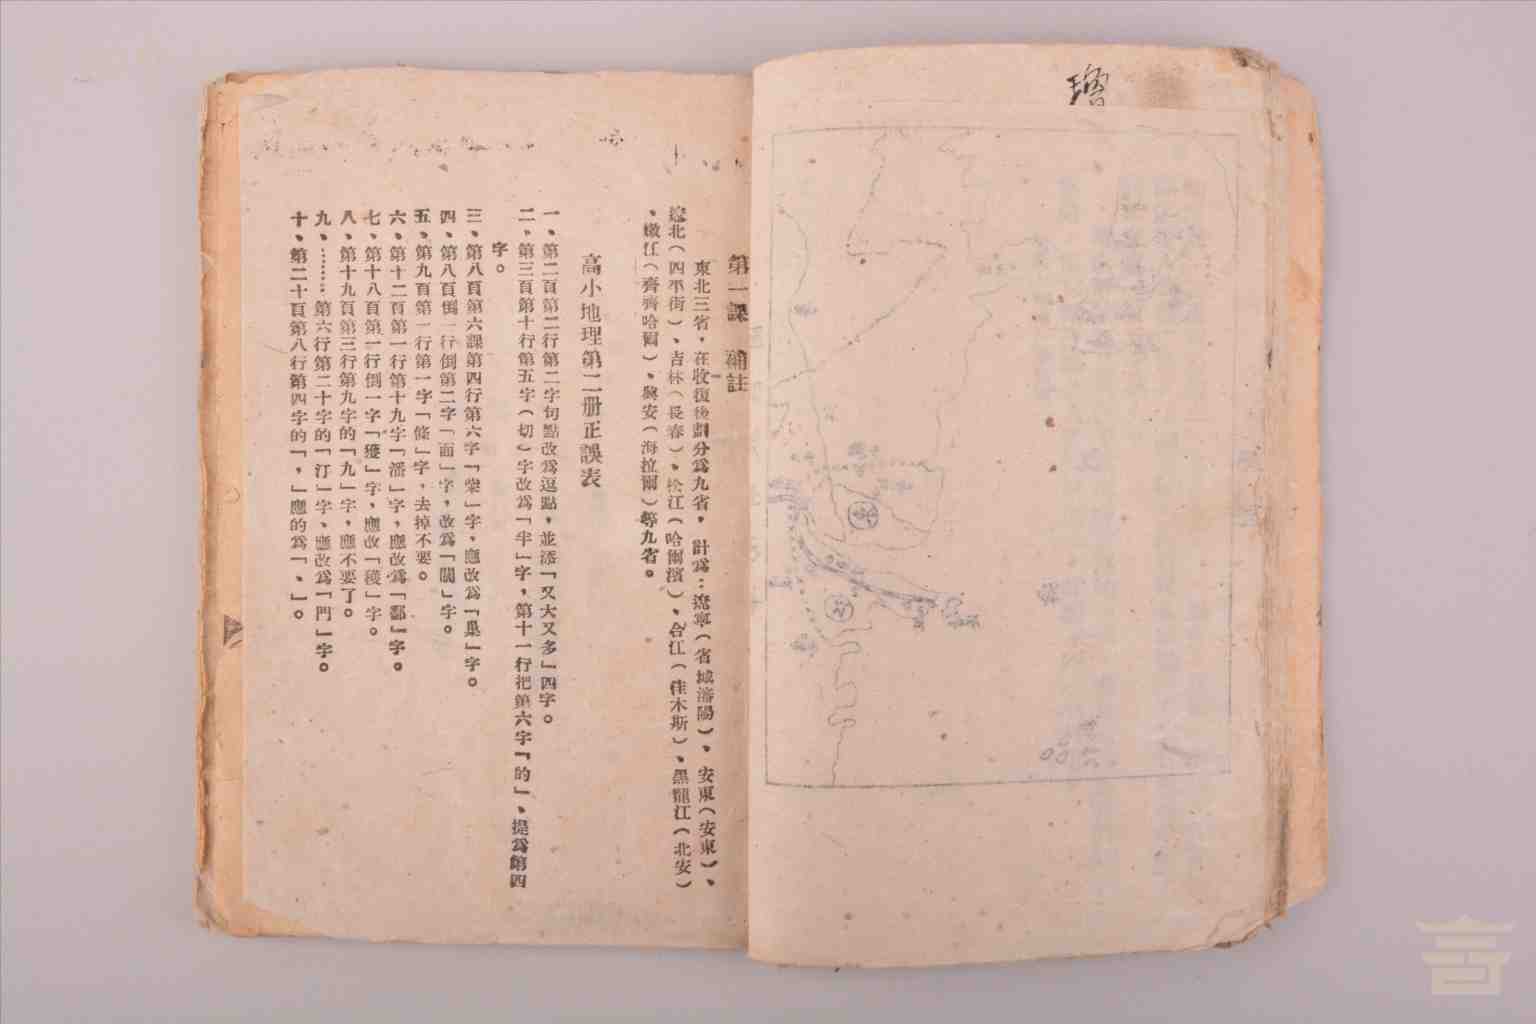 第一課　補註
東北三省，在收復後劃分爲九省，計爲：遼寧（省城瀋陽）、安東（安東）、
遼北（四平街）、吉林（長春）、松江（哈爾濱）、合江（佳木斯）、黑龍江（北安）
、嫩江（齊齊哈爾）、興安（海拉爾）等九省。
高小地理第二册正誤表
一、第二頁第二行第二字句點改爲逗點，並添「又大又多」四字。
二，第三頁第十行第五字（切）字改爲「半」字，第十一行把第六字「的」、提爲第四
字。
三、第八頁第六課第四行第六字「棠」字，應改爲「巢」字。
四、第八頁倒一行倒第二字「面」字，改爲「闊」字。
五、第九頁第一行第一字「條」字，去掉不要。
六、第十二頁第一行第十九字「潘」字，應改爲「鄱」字。
七、第十八頁第一行倒一字「獲」字，應改「穫」字。
八、第十九頁第三行第九字的「九」字，應不要了。
九、………第六行第二十字的「汀」字、應改爲「門」字。
十、第二十頁第八行第四字的「，」應的爲「、」。